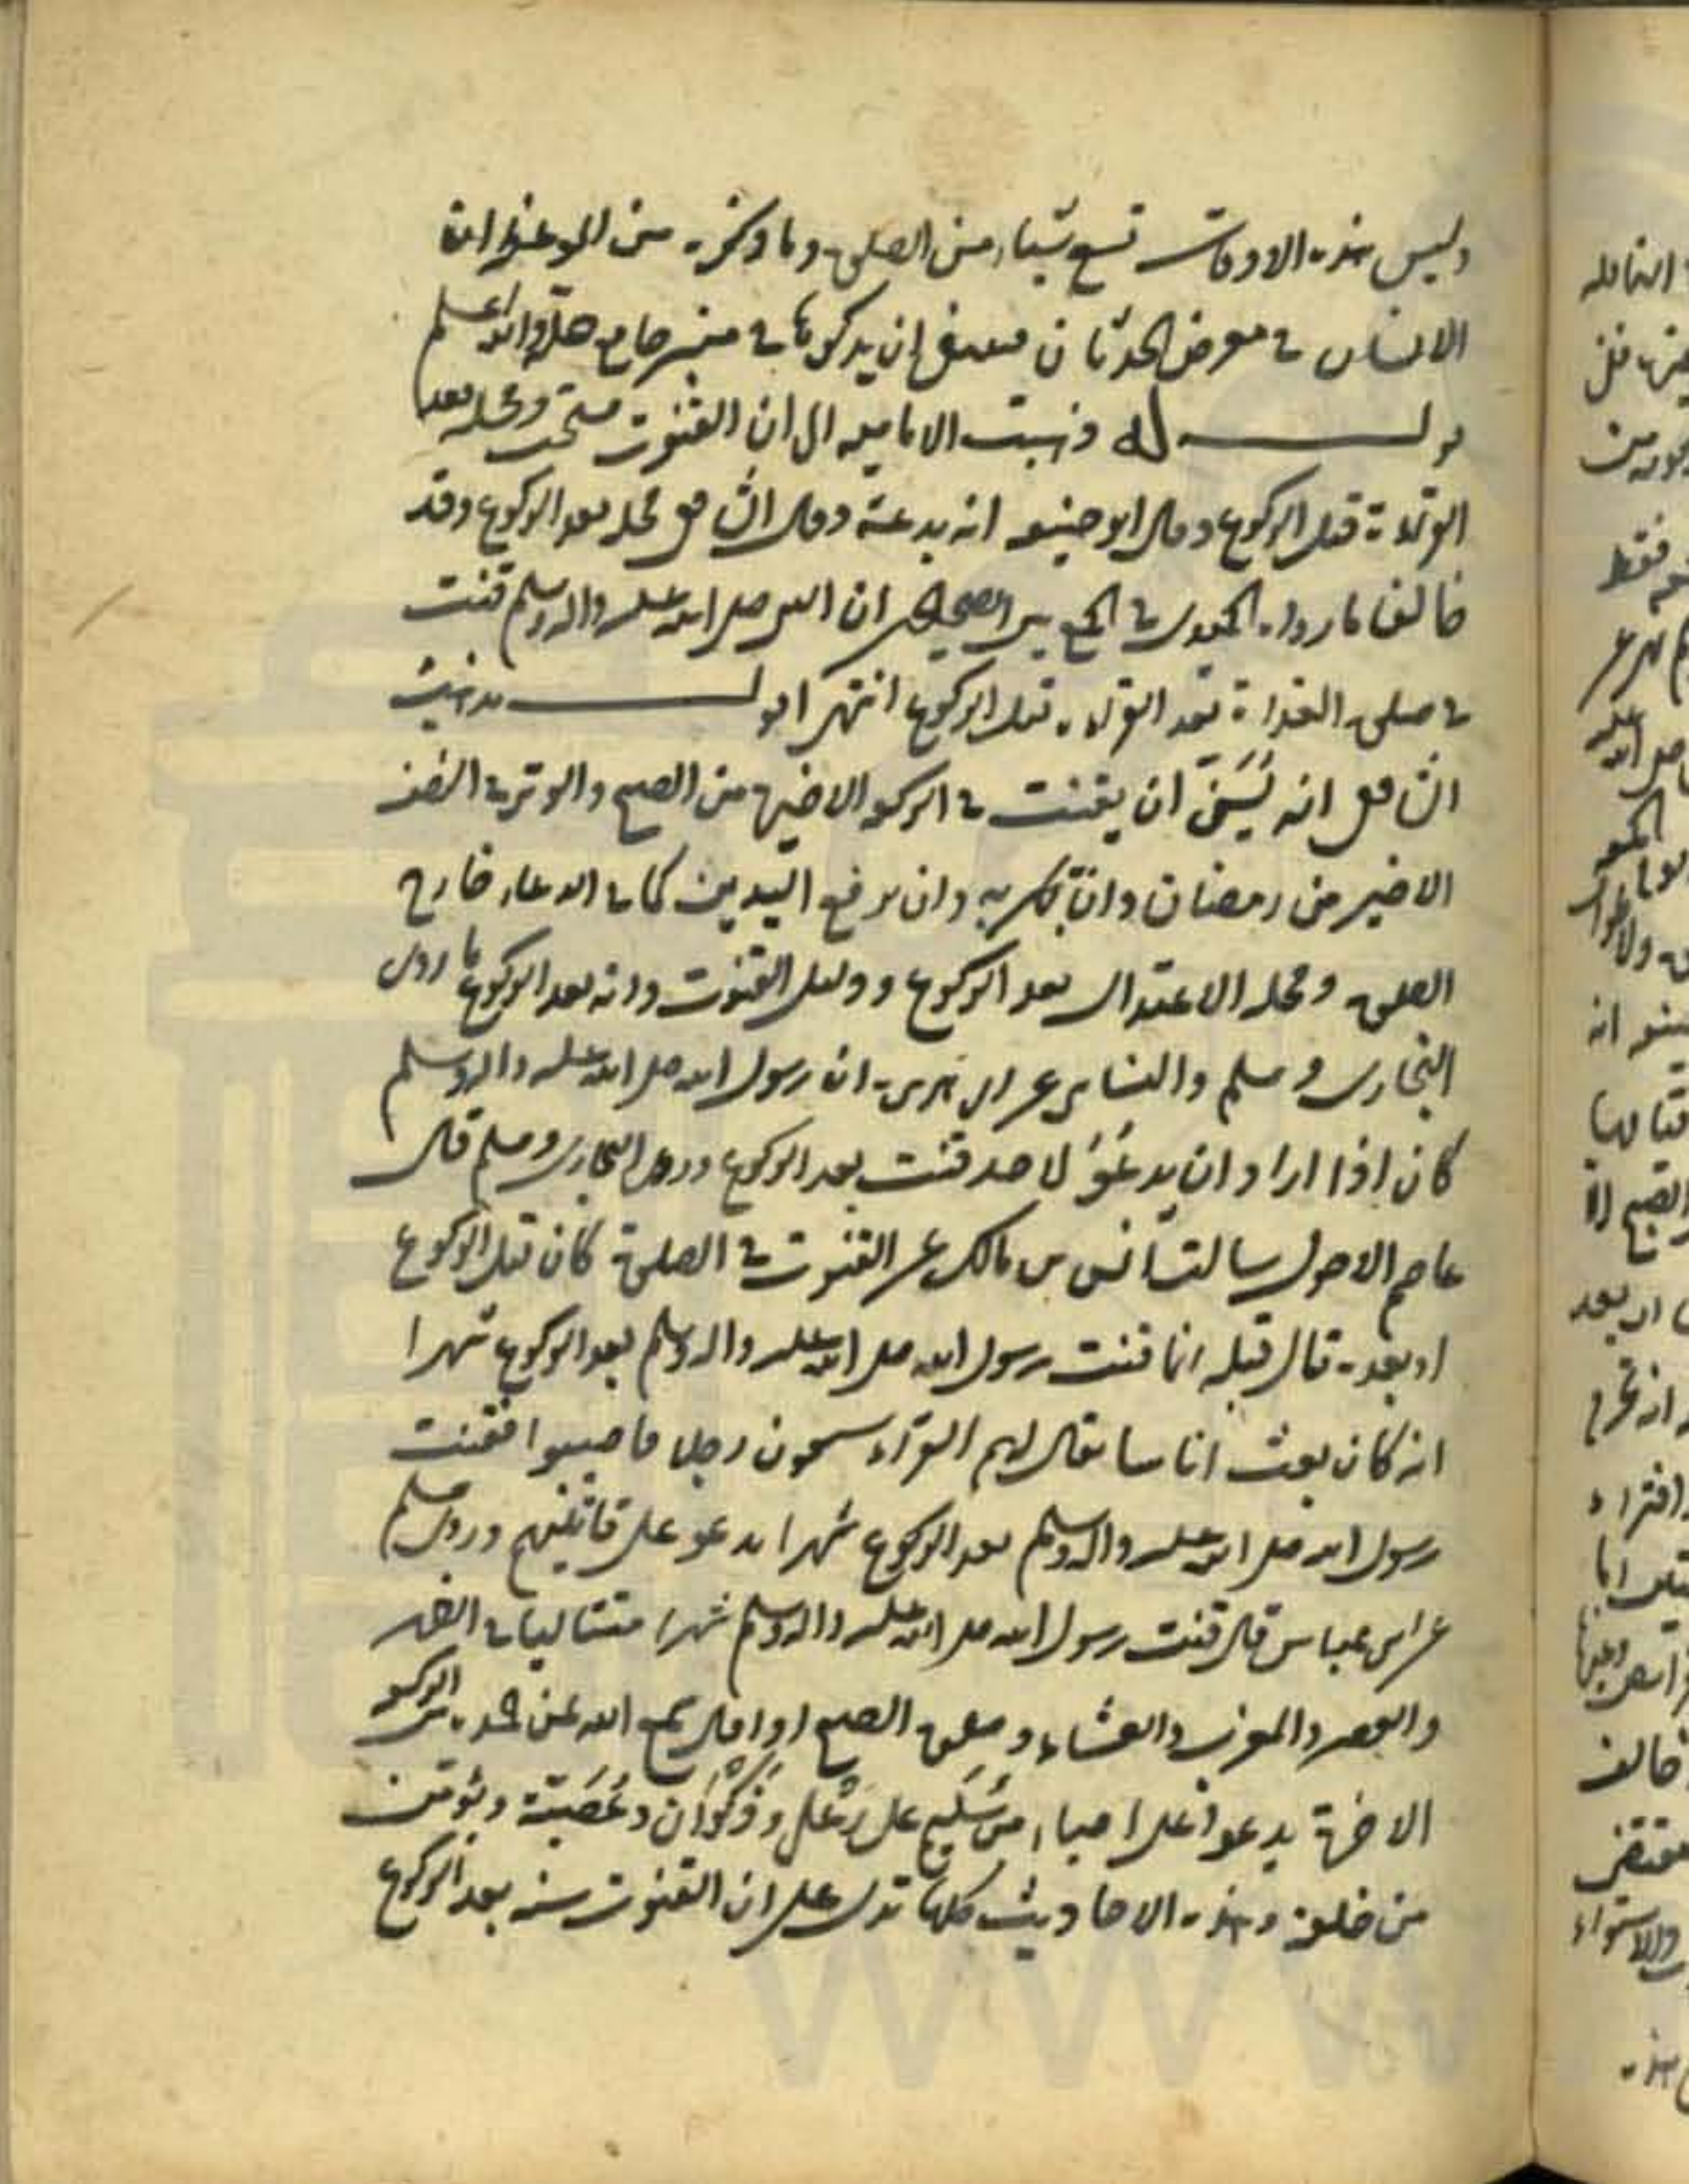 وليس هذه الاوقات تسع شيئا من الصلوة وما ذكره من المواعظ ان
الانسان في معرض الحدثان فينبغي ان يذكرها في منبر جامع حلة والله اعلم
قوله ذهبت الامامية الى ان القنوت مستحب ومحله بعد
القراءة قبل الركوع وقال ابو حنيفة انه بدعة وقال الشافعي محله بعد الركوع وقد
خالفا ما رواه الحميدي في الجمع بين الصحيحين ان النبي صلى الله عليه واله وسلم قنت
في صلوة الغداة بعد القراءة قبل الركوع انتهى اقول مذهب
الشافعي انه يُسَنّ ان يقنت في الركعة الاخيرة من الصبح والوتر في النصف
الاخير من رمضان وان يجهر به وان يرفع اليدين كما في الدعاء خارج
الصلوة ومحله الاعتدال بعد الركوع ودليل القنوت وانه بعد الركوع ما روى
البخاري ومسلم والنسائي عن ابي هريرة ان رسول الله صلى الله عليه واله وسلم
كان اذا اراد ان يدعُوَ لاحد قنت بعد الركوع وروى البخاري ومسلم قال
عاصم الاحول سالت انس بن مالك عن القنوت في الصلوة كان قبل الركوع
او بعده قال قبله انما قنت رسول الله صلى الله عليه واله وسلم بعد الركوع شهرا
انه كان بعث اناسا يقال لهم القراء سبعون رجلا فاصيبوا فقنت
رسول الله صلى الله عليه واله وسلم بعد الركوع شهرا يدعو على قاتليهم وروى مسلم
عن ابن عباس قال قنت رسول الله صلى الله عليه واله وسلم شهرا متتاليا في الظهر
والعصر والمغرب والعشاء وصلوة الصبح اذا قال سمع الله لمن حمده من الركعة
الاخرة يدعوا على احياء من سُلَيم على رِعْل وذَكْوَان وعُصَيّة ويؤمن
من خلفه وهذه الاحاديث كلها تدل على ان القنوت سنة بعد الركوع